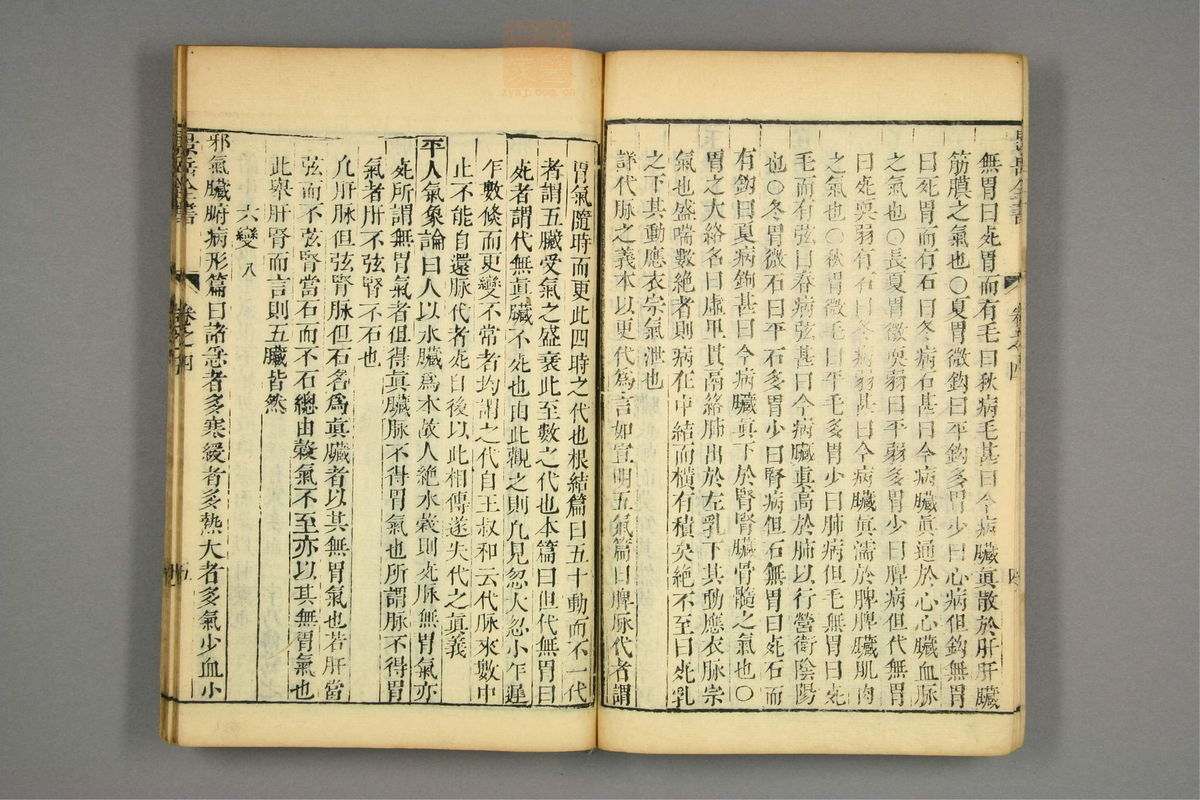 無胃曰死胃而有毛曰秋病毛甚曰今病臟眞散於肝肝臟
筋膜之氣也○夏胃微鈎曰平鈎多胃少曰心病但鈎無胃
曰死胃而有石曰冬病石甚曰今病臟眞通於心心臟血脉
之氣也○長夏胃微耎弱曰平弱多胃少曰脾病但代無胃
曰死耎弱有石曰冬病弱甚曰今病臟眞濡於脾脾臟肌肉
之氣也○秋胃微毛曰平毛多胃少曰肺病但毛無胃曰死
毛而有弦曰春病弦甚曰今病臟眞高於肺以行營衛陰陽
也○冬胃微石曰平石多胃少曰腎病但石無胃曰死石而
有鈎曰夏病鈎甚曰今病臟眞下於腎腎臟骨髓之氣也○
胃之大絡名曰虛里貫鬲絡肺出於左乳下其動應衣脉宗
氣也盛喘數絶者則病在中結而橫有積矣絶不至曰死乳
之下其動應衣宗氣泄也
詳代脉之義本以更代爲言如宣明五氣篇曰脾脉代者謂
胃氣隨時而更此四時之代也根結篇曰五十動而不一代
者謂五臟受氣之盛衰此至數之代也本篇曰但代無胃曰
死者謂代無眞臟不死也由此觀之則凡見忽大忽小乍遲
乍數倐而更變不常者均謂之代自王叔和云代脉來數中
止不能自還脉代者死自後以此相傳遂失代之眞義
平人氣象論曰人以水臟爲本故人絶水穀則死脉無胃氣亦
死所謂無胃氣者但得眞臟脉不得胃氣也所謂脉不得胃
氣者肝不弦腎不石也
凡肝脉但弦腎脉但石名爲眞臟者以其無胃氣也若肝當
弦而不弦腎當石而不石總由穀氣不至亦以其無胃氣也
此舉肝腎而言則五臟皆然
六變 八
邪氣臟腑病形篇曰諸急者多寒緩者多熱大者多氣少血小
景岳全書
卷之四
五